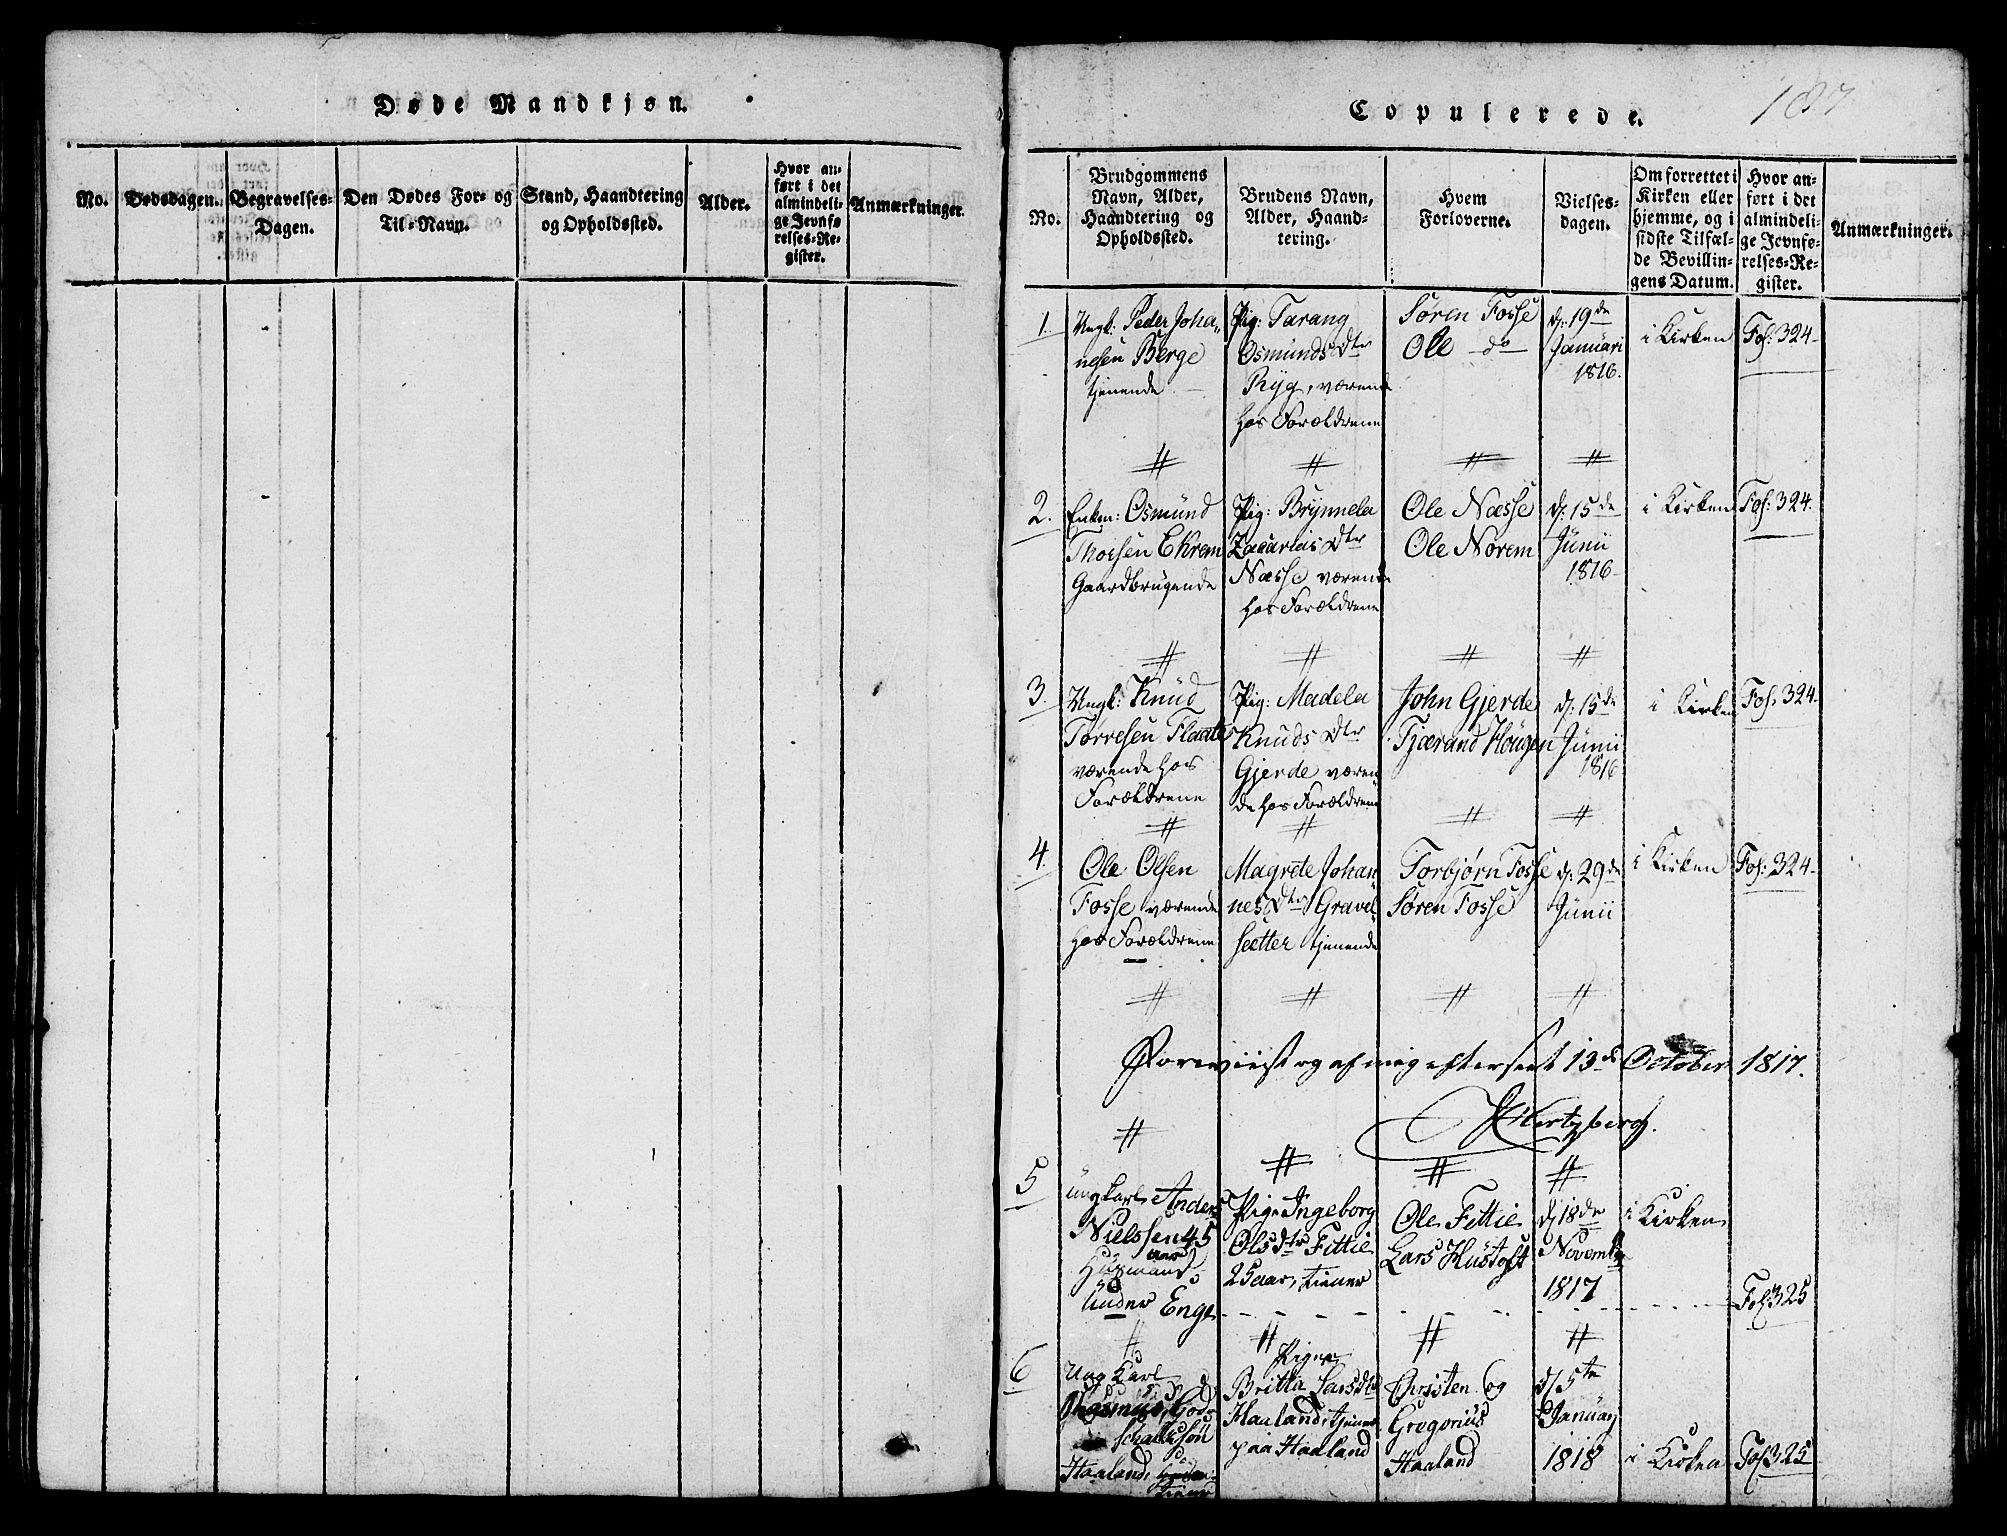 Døde Mandkjøn.
No.
Dødsdagen.
Begravelses-
Dagen.
Den Dødes For- og
Til-Navn.
Stand, Haandtering
og Opholdssted.
Alder.
Hvor an-
ført i det
almindeli-
ge Jevnfø
relses-Re-
gister.
Anmærkninger.
Copulerede.
187
No.
Brudgommens
Navn, Alder,
Haandtering og
Opholdssted.
Brudens Navn,
Alder, Haand-
tering.
Hvem
Forloverne.
Vielses-
dagen.
Om forrettet i
Kirken eller
hjemme, og i
sidste Tilfæl-
de Bevillin-
gens Datum.
Hvor an-
ført i det
almindeli-
ge Jevnfø-
relses-Re-
gister.
Anmærkninger.
1.
Ungk: Peder Joha„
nesen Berge
tjenende
Pig: Tarang
Osmunds Dtr
Ryg, værende
hos Forældrene
Søren Fosse
Ole do
d: 19de
Januari
1816.
i Kirken
Fol: 324
2.
Enkm: Osmund
Thoesen Ekrem
Gaardbrugende
Pig: Brynnela
Zacarias Dtr
Næsse værende
hos Forældrene
Ole Næsse
Ole Norem
d: 15de
Junii
1816
i Kirken
Fol: 324.
3.
Ungk: Knud
Torresen Flaate
værende hos
Forældrene
Pig: Madela
Knuds Dtr
Gjerde væren
de hos Forældrene
John Gjerde
Tjærand Hougen
d: 15de
Junii
1816
i Kirken
Fol: 324
4.
Ole Olsen
Fosse værende
hos Forældrene
Magrete Johan
nes Dtr Gravel
sætter tjenende
Torbjørn Fosse
Søren Fosse
d: 29de
Junii
i Kirken
Fol: 324
Foreviist og af mig efterseet 13de October 1817.
Hertzberg.
5
ungkarl Anders
Nielssen 45
aar
Husmand
under Enge
Pige Ingeborg
Olsdtr Fittie
25 aar, tiener
Ole Fittie
Lars Hustoft
d 18de
Novemb
1817
i Kirken
Fol: 325
6
Ung Karl
Rasmus God-
schalksøn
Haaland,
tiener
Pigen
Britta Larsdtr
Haaland, tiener
paa Haaland
Torsten og
Gregorius
Haaland
d 5te
Januar
1818
i Kirken
Fol 325